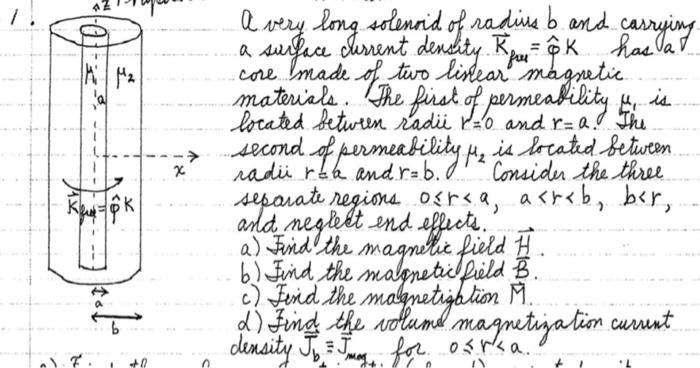 1.
z
μ₁
μ₂
a
x
K⃗free = φ̂K
a
b
A very long solenoid of radius b and carrying
a surface current density K⃗free = φ̂K has a
core made of two linear magnetic
materials. The first of permeability μ₁ is
located between radii r=0 and r=a. The
second of permeability μ₂ is located between
radii r=a and r=b. Consider the three
separate regions 0≤r<a, a<r<b, b<r,
and neglect end effects.
a) Find the magnetic field H⃗.
b) Find the magnetic field B⃗.
c) Find the magnetization M⃗.
d) Find the volume magnetization current
density J⃗b ≡ J⃗mag for 0≤r<a.